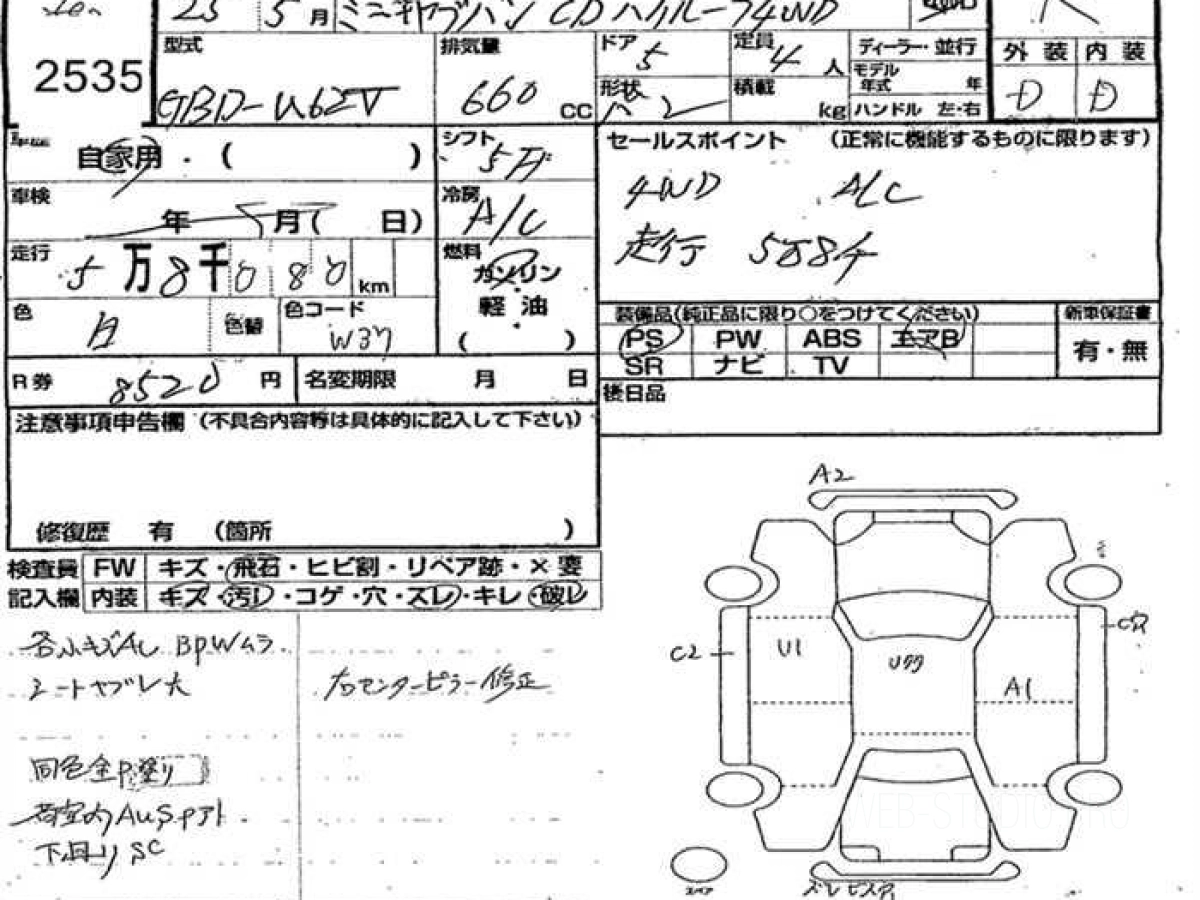 25 5月 ミニキャブバン CD ハイルーフ4WD
2535
型式 GBD-U62V
排気量 660 CC
ドア 5
定員 4 人
ディーラー・並行
モデル年式 年
形状 バン
積載 kg
ハンドル 左・右
外装 内装
D D
自家用・( )
シフト 5F
セールスポイント (正常に機能するものに限ります)
4WD A/C
走行 58千
車検 年 月( 日)
冷房 A/C
走行 5万8千080km
燃料 ガソリン
軽油
( )
色 白 色替 色コード W37
装備品(純正品に限り○をつけてください)
新車保証書
PS PW ABS エアB
有・無
SR ナビ TV
R券 8520 円 名変期限 月 日
後日品
注意事項申告欄(不具合内容等は具体的に記入して下さい)
修復歴 有 (箇所 )
検査員 FW キズ・飛石・ヒビ割・リペア跡・×要
記入欄 内装 キズ・汚レ・コゲ・穴・スレ・キレ・破レ
各小キズAU BPWムラ
シートヤブレ大
右センターピラー修正
同色全P塗り
荷室内AUSPアト
下回りSC
A2
C2
U1
Uタタ
A1
C穴
スペア
ズレ ビスアナ
WEB-STUDIO.PRO